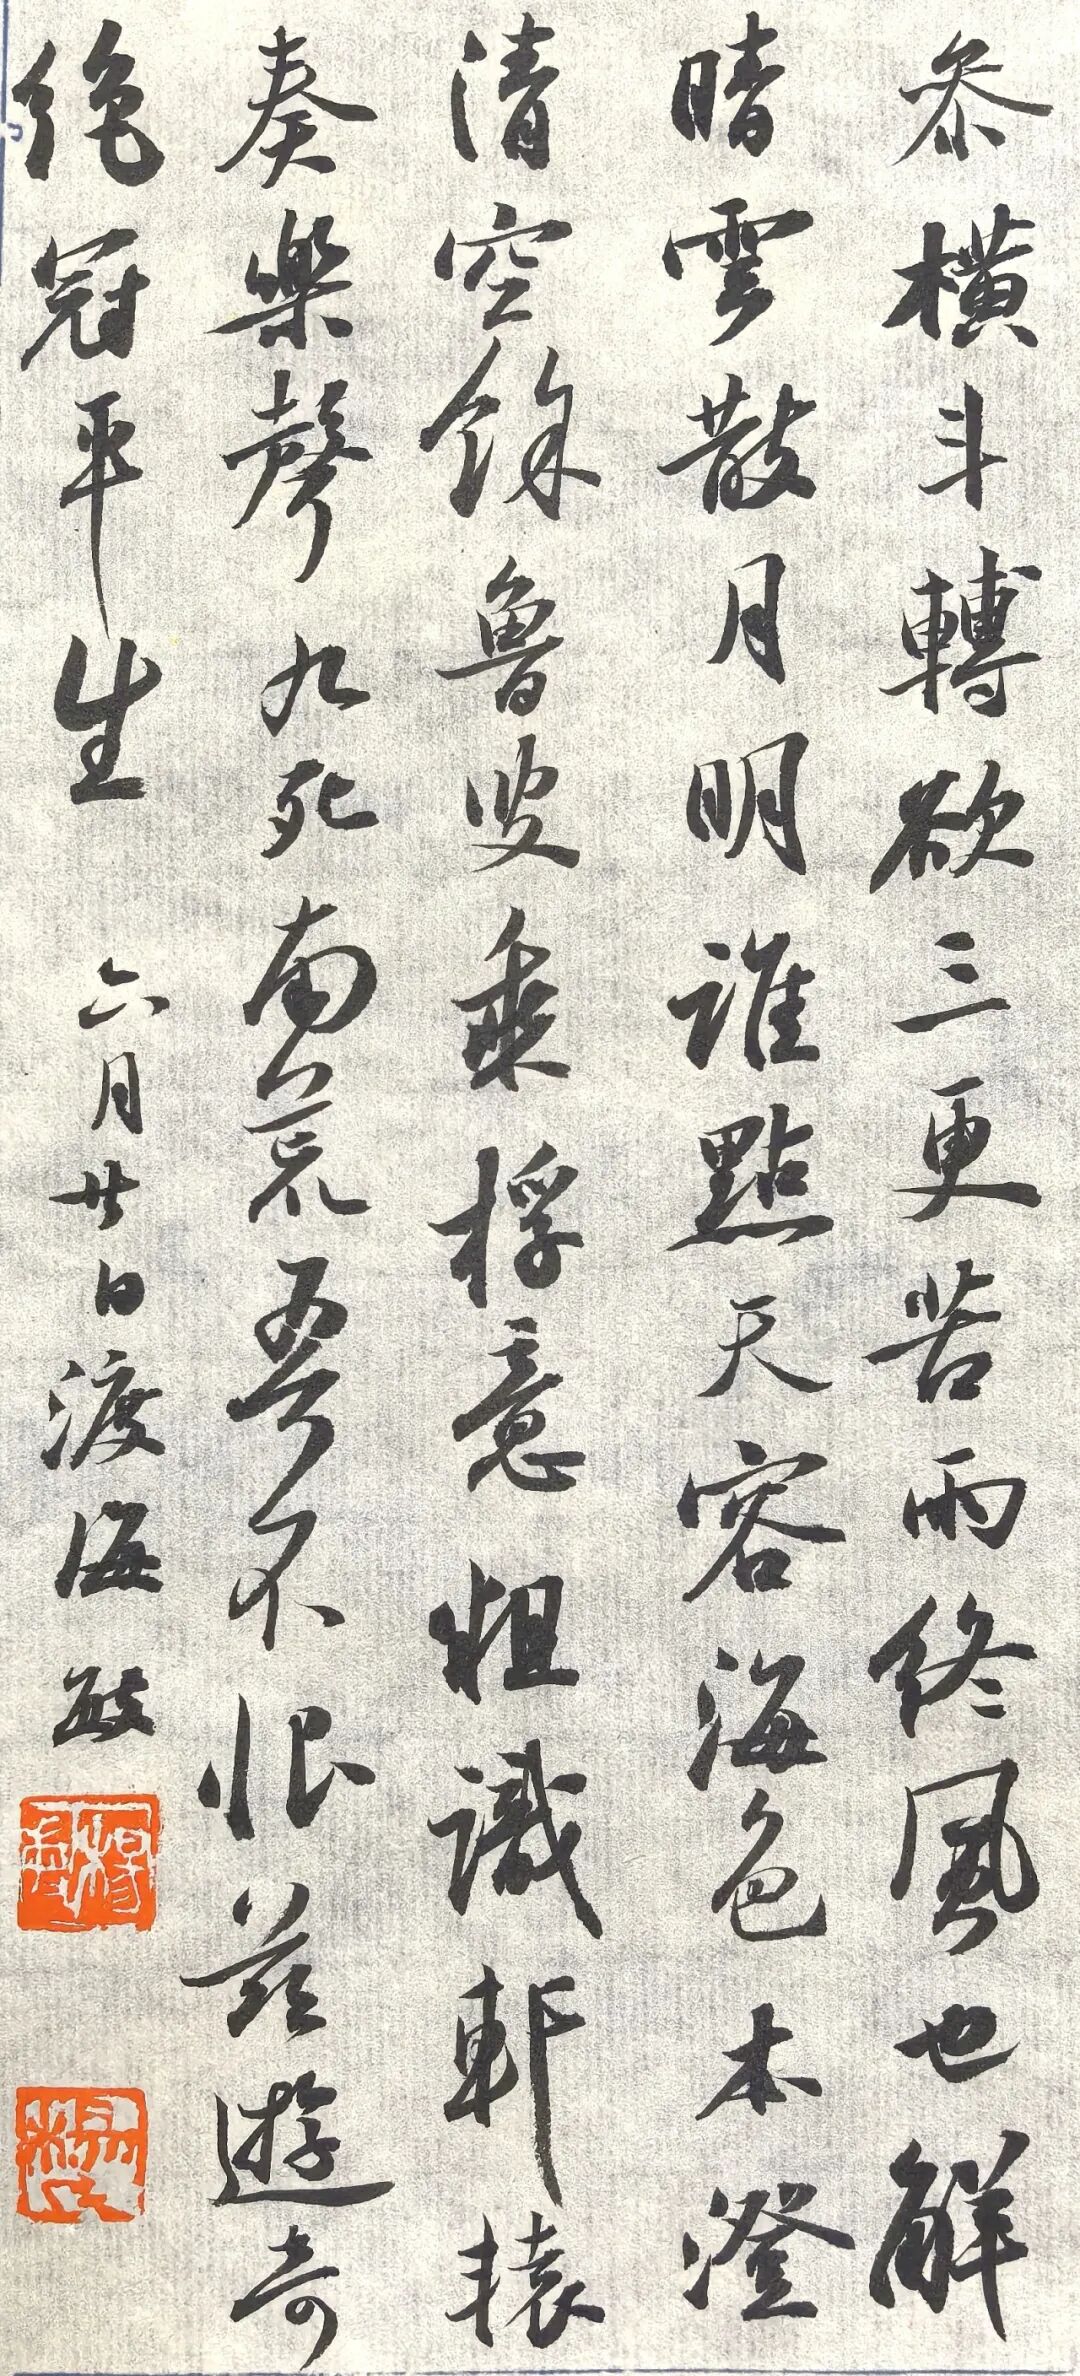 參橫斗轉欲三更苦雨終風也解
晴雲散月明誰點天容海色本澄
清空餘魯叟乘桴意粗識軒轅
奏樂聲九死南荒吾不恨茲遊奇
絕冠平生 六月廿日渡海 敏